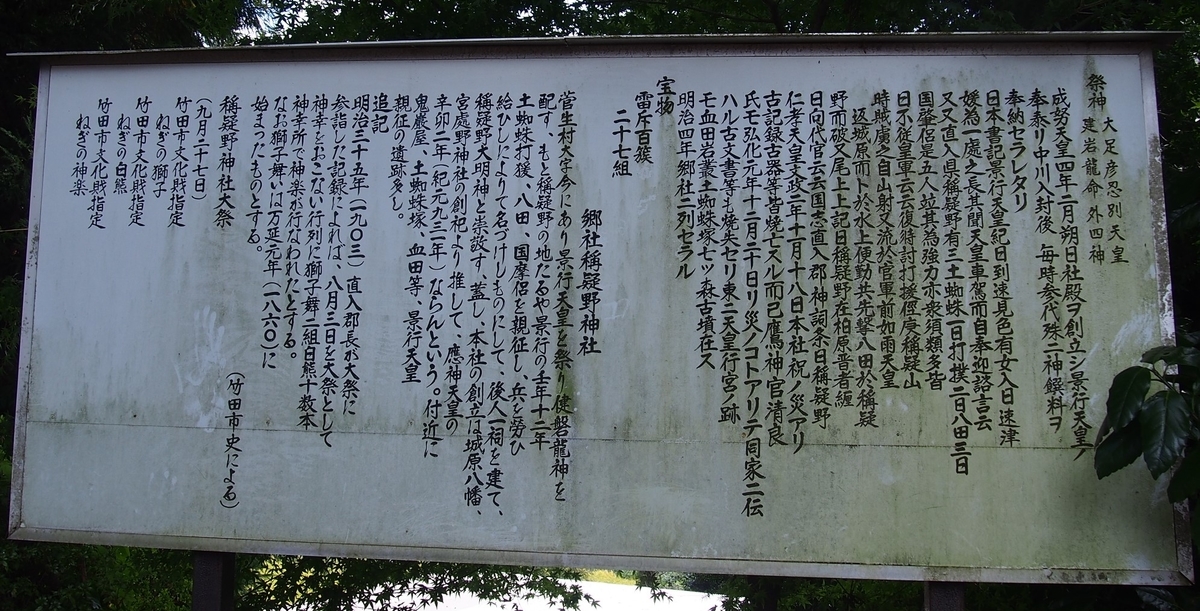 祭神 大足彦忍別天皇
建岩龍命 外四神
成努天皇四年二月朔日社殿ヲ創立シ景行天皇ノ
奉泰リ中川入封後 毎時参代殊ニ神饌料ヲ
奉納セラレタリ
日本書記景行天皇紀日到速見色有女入日速津
媛為一處之長其聞天皇車駕而自奉迎諮言云
又又直入県稱疑野有三土蜘蛛一日打撲二日八田三日
国摩侶是五人竝其為強力亦衆類多皆
日不従皇軍云云復将討打援徑庚稱疑山
時賊虜之自山射又流於官軍前如雨天皇
返城原而卜於水上便勒共先撃八田於稱疑
野而破又尾上上記日稱疑野在柏原普者纏
日向代官云云国志直入郡神詞条日稱疑野
仁孝天皇文政二年十月十八日本社祝ノ災アリ
古記録古器等皆焼亡スル而己鷹神官清良
氏モ弘化元年十二月二十日リ災ノコトアリテ同家二伝
ハル古文書等も焼失セリ東二天皇行宮ノ跡
モ血田岩叢土蜘蛛塚七ッ森古墳在ス
明治四年郷社二列セラル
宝物
雷斥百箙
二十七組
郷社稱疑野神社
菅生村大字今にあり景行天皇を祭り健磐龍神を
配す、もと稱疑野の地たるや景行の壬年十二年
土蜘蛛打猨、八田、国摩侶を親征し、兵を勞ひ
給ひしによりて名づけしものにして、後人一祠を建て、
稱疑野大明神と崇設す、蓋し、本社の創立は城原八幡、
宮處野神社の創祀より推して、應神天皇の
辛卯二年（紀元九三一年）ならんという。付近に
鬼巖屋、土蜘蛛塚、血田等、景行天皇
親征の遺跡多し。
追記
明治三十五年（一九〇三）直入郡長が大祭に
参詣した記録によれば、八月三日を大祭として
神幸をおこない行列に獅子舞二組白熊十数本
神幸所で神楽が行なわれたとする。
なお獅子舞いは万延元年（一八六〇）に
始まったものとする。
（竹田市史による）
稱疑野神社大祭
（九月二十七日）
竹田市文化財指定
ねぎの獅子
竹田市文化財指定
ねぎの白熊
竹田市文化財指定
ねぎの神楽